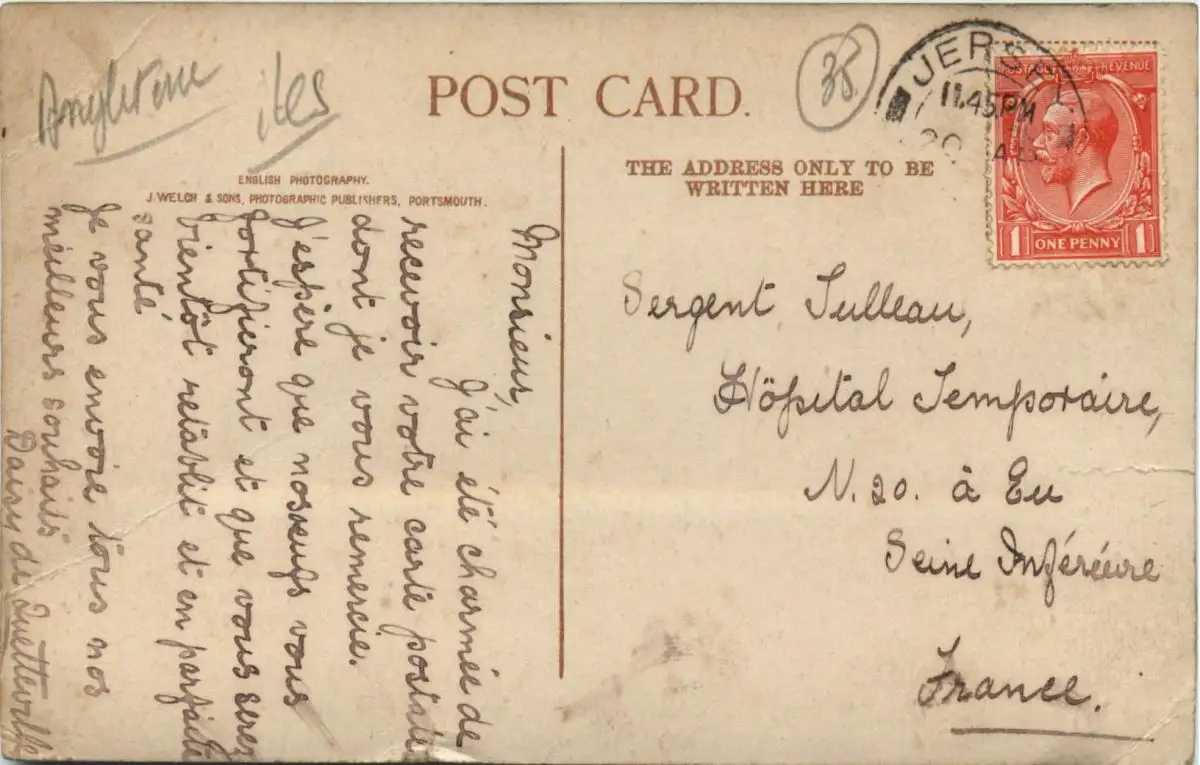 Angleterre
iles
POST CARD.
38
JERSEY
11.45 PM
20
POSTAGE REVENUE
1 ONE PENNY 1
ENGLISH PHOTOGRAPHY.
J. WELCH & SONS, PHOTOGRAPHIC PUBLISHERS, PORTSMOUTH.
THE ADDRESS ONLY TO BE
WRITTEN HERE
Monsieur,
J'ai été charmée de
recevoir votre carte postale
dont je vous remercie.
J'espère que nos œufs vous
fortifieront et que vous serez
bientôt rétablit et en parfaite
santé
Je vous envoie tous nos
meilleurs souhaits
Daisy de Quetteville
Sergent Tulleau,
Hôpital Temporaire,
N. 20. à Eu
Seine Inférieure
France.